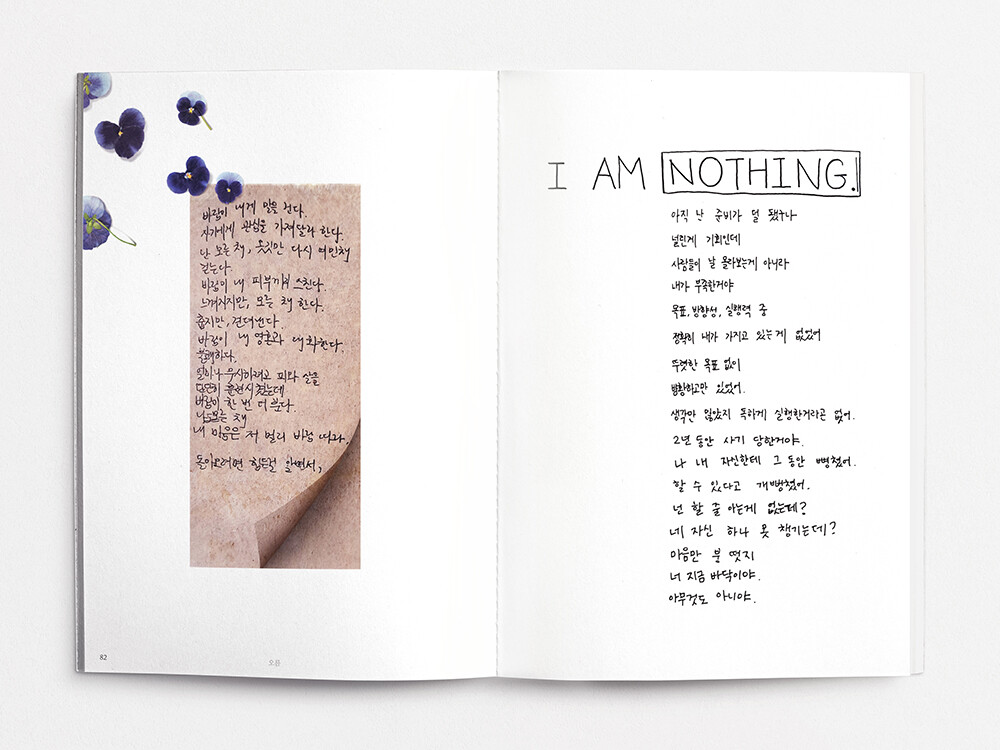 바람이 내게 말을 건다.
자기에게 관심을 가져달라 한다.
난 모른 채, 옷깃만 다시 여민채
걷는다.
바람이 내 피부까지 스친다.
느껴지지만, 모른 채 한다.
춥지만, 견뎌낸다.
바람이 내 영혼과 대화한다.
불쾌하다.
얼마나 무시하려고 피와 살을
단단히 훈련시켰는데
바람이 한 번 더 분다.
나 모른 채
내 마음은 저 멀리 바람 따라.
돌아오려면 힘든걸 알면서,
82
오름
I AM NOTHING.
아직 난 준비가 덜 됐구나
널린게 기회인데
사람들이 날 몰라보는게 아니라
내가 부족한거야
목표, 방향성, 실행력 중
정확히 내가 가지고 있는게 없었어
뚜렷한 목표 없이
방황하고만 있었어.
생각만 많았지 독하게 실행한거라곤 없어.
2년 동안 사기 당한거야.
나 내 자신한테 그 동안 뻥쳤어.
할 수 있다고 개뻥쳤어.
넌 할 줄 아는게 없는데?
네 자신 하나 못 챙기는데?
마음만 붕 떴지
너 지금 바닥이야.
아무것도 아니야.